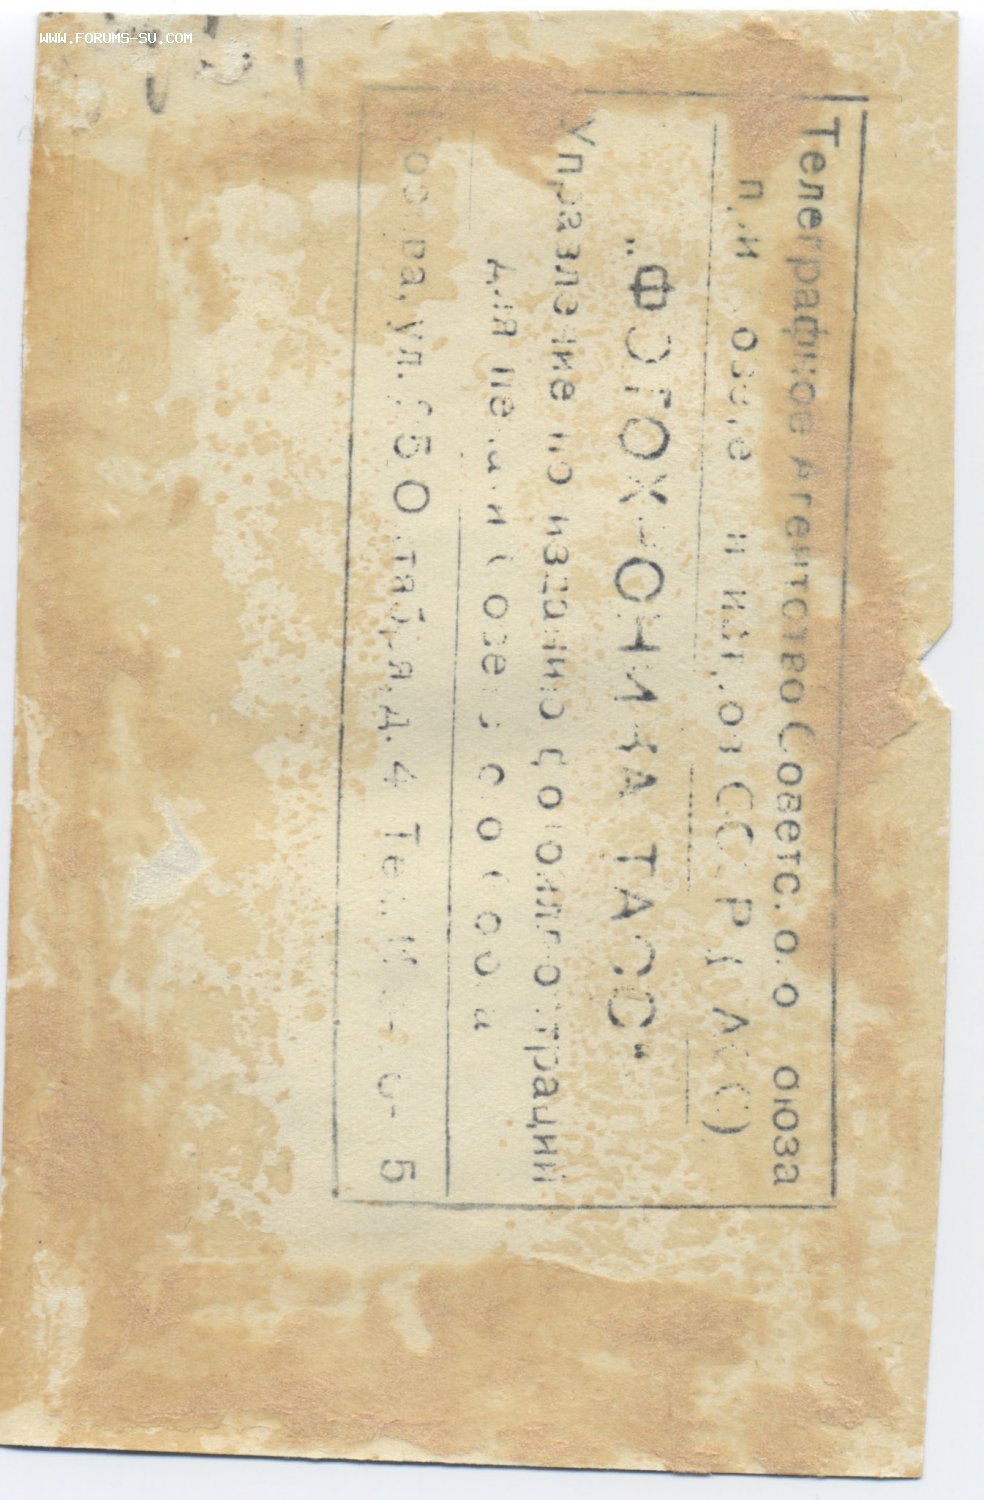 WWW.FORUMS-SU.COM
Телеграфное Агентство Советского Союза
при Совете Министров СССР (ТАСС)
„ФОТОХРОНИКА ТАСС“
Управление по изданию фотоиллюстраций
для печати Советского Союза
Москва, ул. 25 Октября, д. 4 Тел. 5